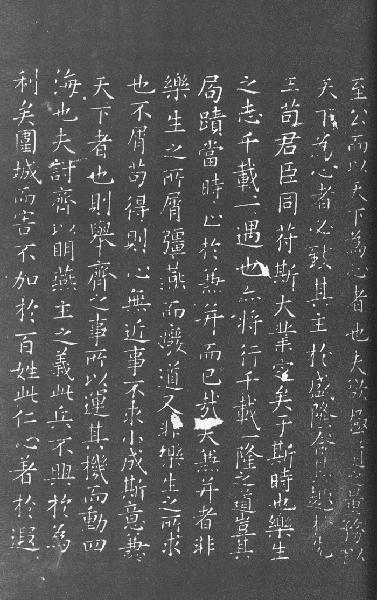 至公而以天下為心者也夫欲極道之量務以
天下為心者必致其主於盛隆合其趣於先
王苟君臣同符斯大業定矣于斯時也樂生
之志千載一遇也亦將行千載一隆之道豈其
局蹟當時止於兼并而已哉夫兼并者非
樂生之所屑彊燕而廢道又非樂生之所求
也不屑苟得則心無近事不求小成斯意兼
天下者也則舉齊之事所以運其機而動四
海也夫討齊以明燕主之義此兵不興於為
利矣圍城而害不加於百姓此仁心著於遐